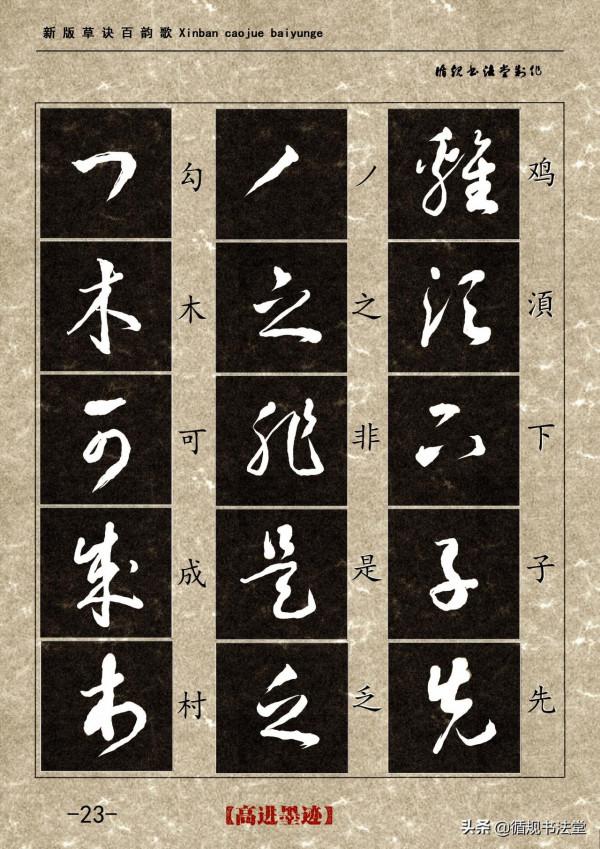 新版草诀百韵歌 Xinban caojue baiyunge
循规书法堂制作
鸡須下子先
丿之非是乏
勾木可成村
-23-
【高进墨迹】
头条 @循规书法堂